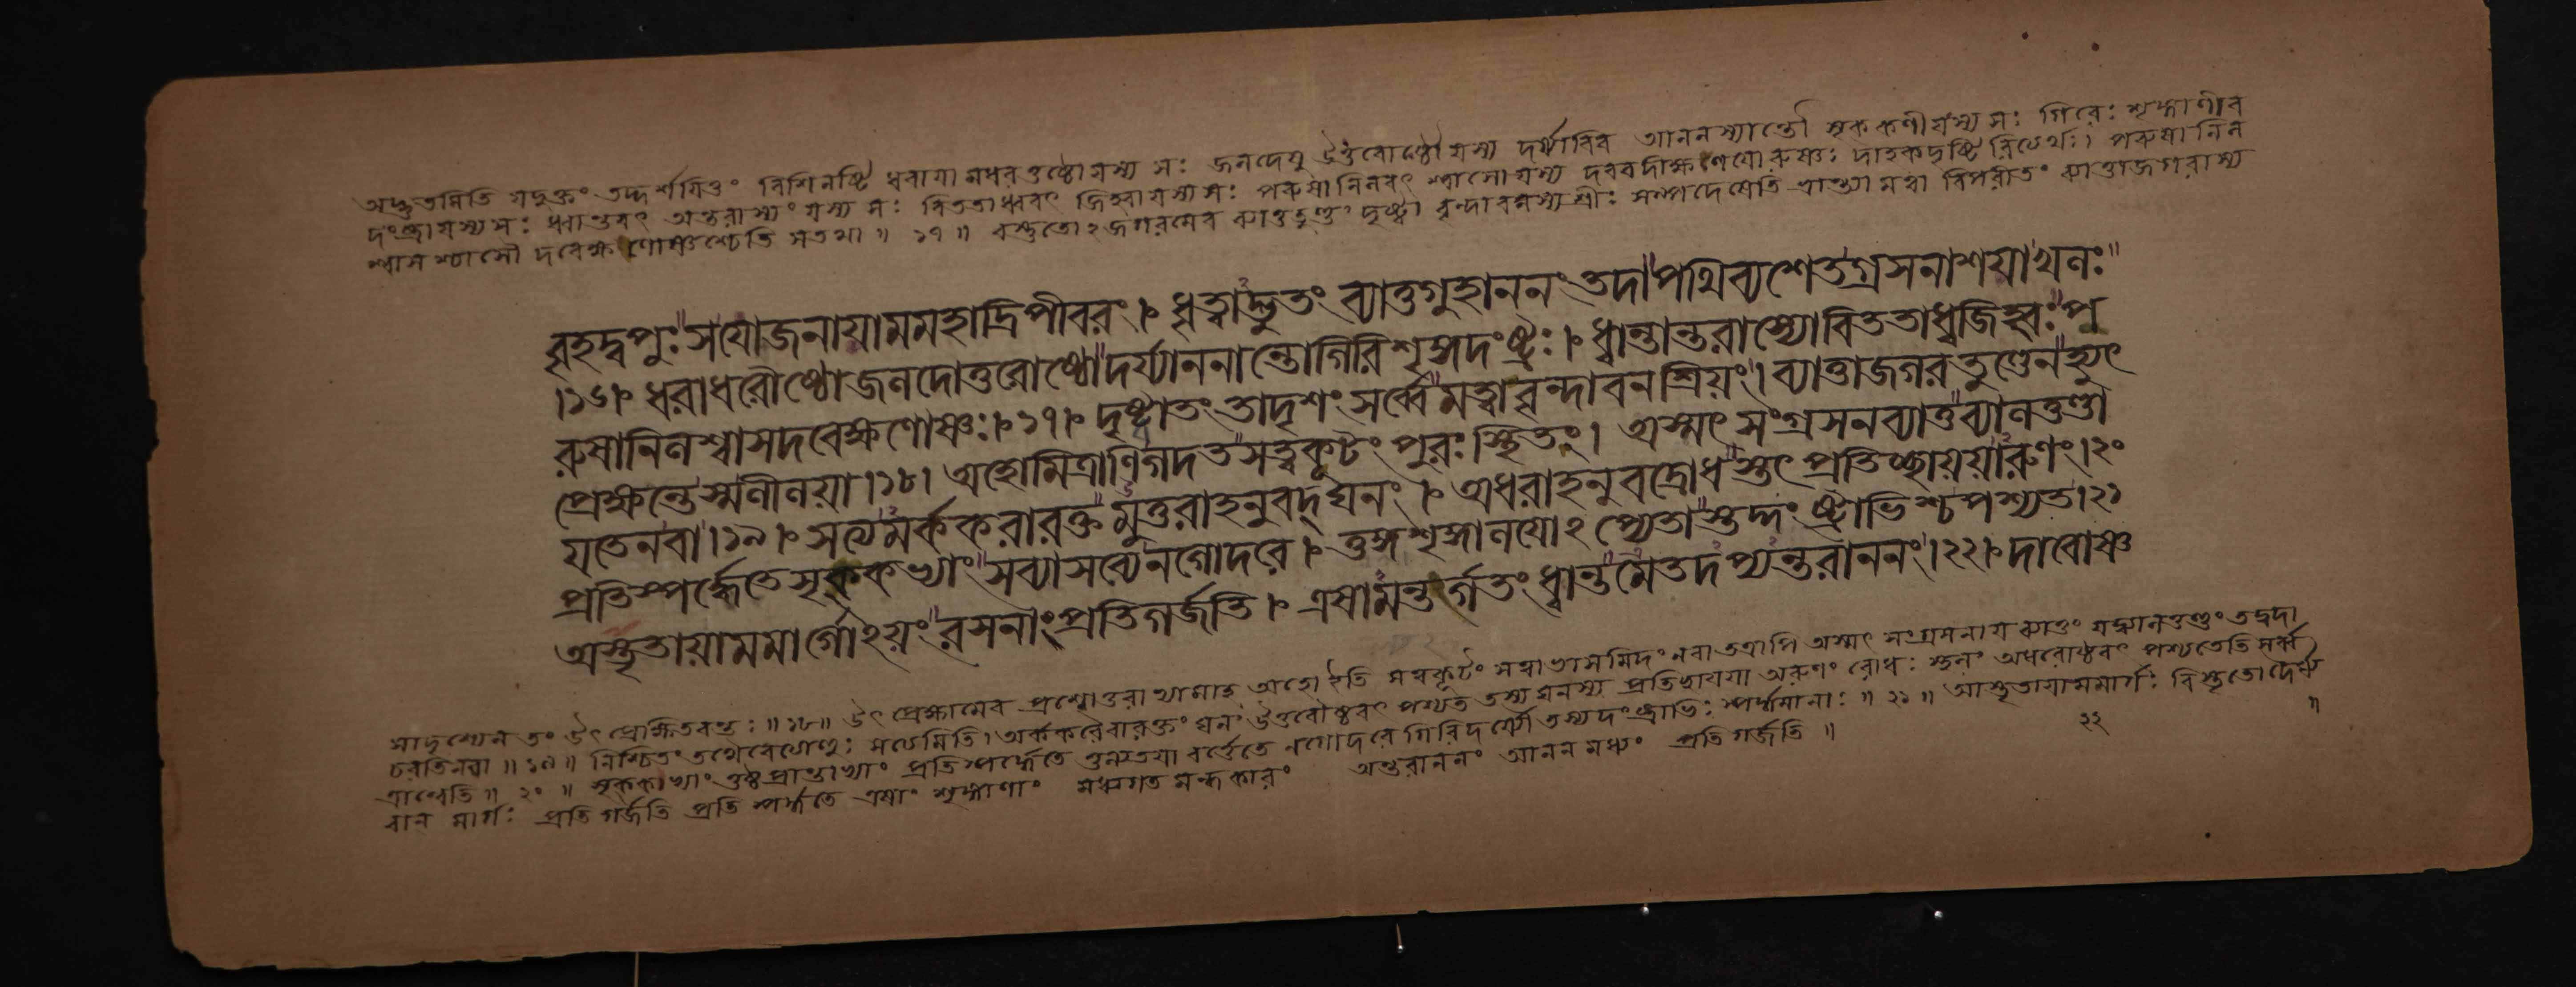 অদ্ভুতমিতি যদুক্তং তদ্দর্শযিতুং বিশিনষ্টি ধরাযামধরওষ্ঠোযস্য সঃ জলদেষু উত্তরোষ্ঠোযস্য দর্য্যাবিব আননস্যান্তৌ সৃক্কণীযস্য সঃ গিরেঃ শৃঙ্গাণীব
দংষ্ট্রাযস্যসঃ ধ্বান্তবৎ অন্তরাস্যং যস্য সঃ বিততাধ্ববৎ জিহ্বাযস্যসঃ পরুষানিলবৎ শ্বাসোযস্য দববদীক্ষণযোরুষ্ণঃ দাহকদৃষ্টিরিত্যর্থঃ। পরুষানিল
শ্বাসশ্চাসৌ দবেক্ষণোষ্ণশ্চেতি সতথা॥ ১৭॥ বস্তুতোঽজগরমেব ব্যাত্ততুণ্ডং দৃষ্ট্বা বৃন্দাবনস্যশ্রীঃ সম্পদেষেতি ভ্রান্ত্যা মত্বা বিপরীতং ব্যাত্তাজগরাস্য
বৃহদ্বপুঃ"সযোজনায়ামমহাদ্রিপীবরং।৽ ধৃত্বাদ্ভুতং ব্যাত্তগুহাননং তদা"পথিব্যশেতগ্রসনাশয়াখলঃ"
।১৬।৽ ধরাধরৌষ্ঠোজলদোত্তরোষ্ঠো"দর্য্যাননান্তোগিরিশৃঙ্গদংষ্ট্রঃ।৽ ধ্বান্তান্তরাস্যোবিততাধ্বজিহ্বঃ"প
রুষানিলশ্বাসদবেক্ষণোষ্ণঃ।৽১৭।৽ দৃষ্ট্বাতং তাদৃশং সর্ব্বে"মত্বাবৃন্দাবনশ্রিয়ং। ব্যাত্তাজগরতুণ্ডেন"হ্যুৎ
প্রেক্ষন্তেস্মলীলয়া।১৮। অহোমিত্রাণিগদত"সত্ত্বকূটং পুরঃ স্থিতং। অস্মৎ সংগ্রসনব্যাত্ত"ব্যালতুণ্ডা
য়তেনবা।১৯।৽ সত্যমর্ককরারক্ত"মুত্তরাহনুবদ্‌ঘনং।৽ অধরাহনুবদ্রোধ"স্তৎ প্রতিচ্ছায়য়ারুণং।২০
প্রতিস্পর্দ্ধেতেসৃক্কভ্যাং"সব্যাসব্যেনগোদরে।৽ তুঙ্গশৃঙ্গালযোঽপ্যেতা"স্তদ্দংষ্ট্রাভিশ্চপশ্যত।২১
অস্তৃতায়ামমার্গোঽয়ং"রসনাংপ্রতিগর্জতি।৽ এষামন্তর্গতং ধ্বান্ত"মেতদপ্যন্তরাননং।২২।৽ দাবোষ্ণ
সাদৃশ্যেন তং উৎপ্রেক্ষিতবন্তঃ॥১৮॥ উৎপ্রেক্ষামেব প্রশ্নোত্তরাভ্যামাহ অহো ইতি সত্ত্বকূটং সত্ত্বাভাসমিদং নবা তত্রাপি অস্মৎ সংগ্রসনায ব্যাত্তং যদ্ব্যালতুণ্ডং তদ্বদা
চরতিনবা॥১৯॥ নিশ্চিতং তথৈবেত্যেণ্যঃ সত্যমিতি। অর্ককরৈরারক্তং ঘনং উত্তরৌষ্ঠবৎ পশ্যত তস্যঘনস্য প্রতিছাযযা অরুণং রোধঃ স্থলং অধরোষ্ঠবৎ পশ্যতেতি সর্ব্ব
ত্রান্বেতি॥ ২০॥ সৃক্কভ্যাং ওষ্ঠপ্রান্তাভ্যাং প্রতিস্পর্দ্ধেতে তুল্যতযা বর্ত্তেতে নগোদরে গিরিদর্য্যৌ তস্যদংষ্ট্রাভিঃ স্পর্দ্ধমানাঃ॥ ২১॥ আস্তৃতাযামমার্গঃ বিস্তৃতোদৈর্ঘ্য
বান মার্গঃ প্রতিগর্জতি প্রতিস্পর্দ্ধতে এষাং শৃঙ্গাণাং মধ্যগতমন্ধকারং অন্তরাননং আননমধ্যং প্রতিগর্জতি॥ ২২ ॥